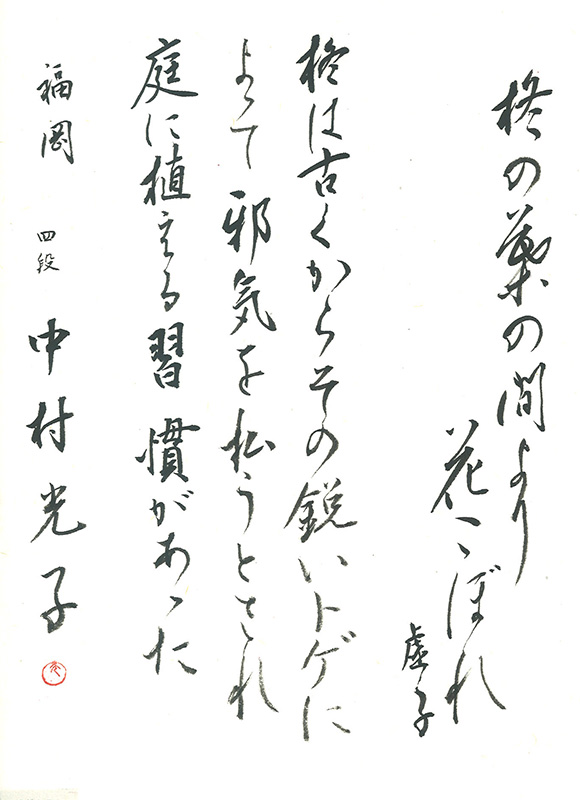 柊の葉の間より
花こぼれ
虚子
柊は古くからその鋭いトゲに
よって邪気を払うとされ
庭に植える習慣があった
福岡 四段 中村光子